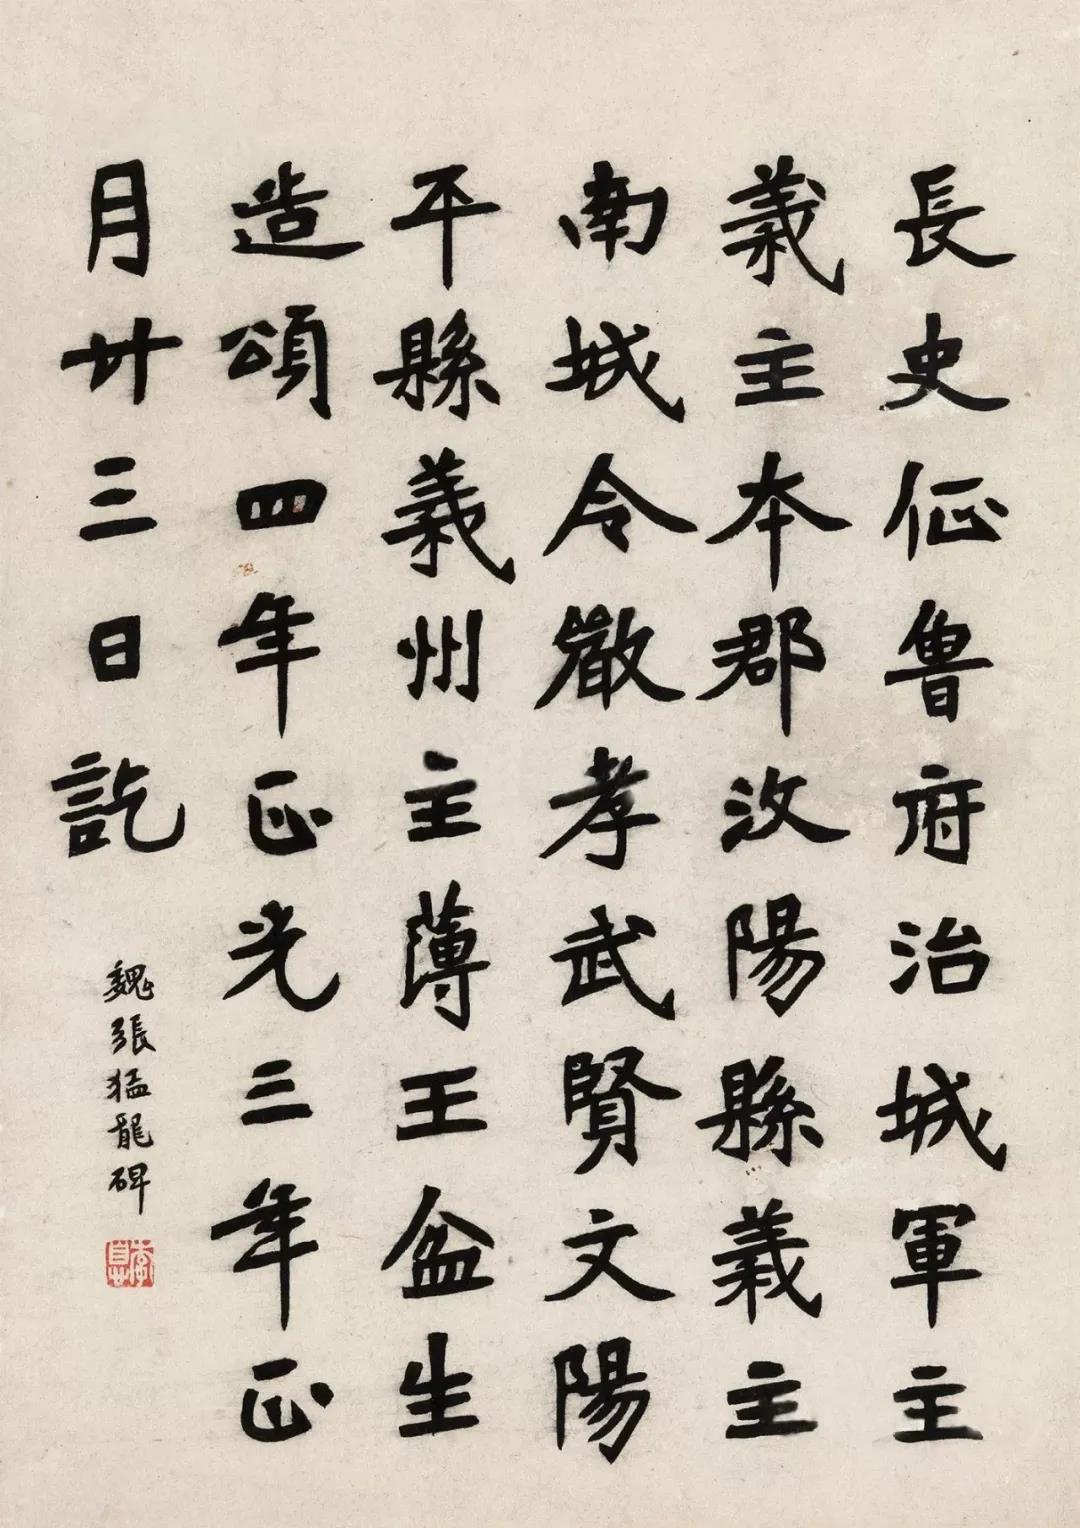 長史征魯府治城軍主
義主本郡汶陽縣義主
南城令嚴孝武賢文陽
平縣義州主薄王盆生
造頌四年正光三年正
月廿三日訖
魏張猛龍碑